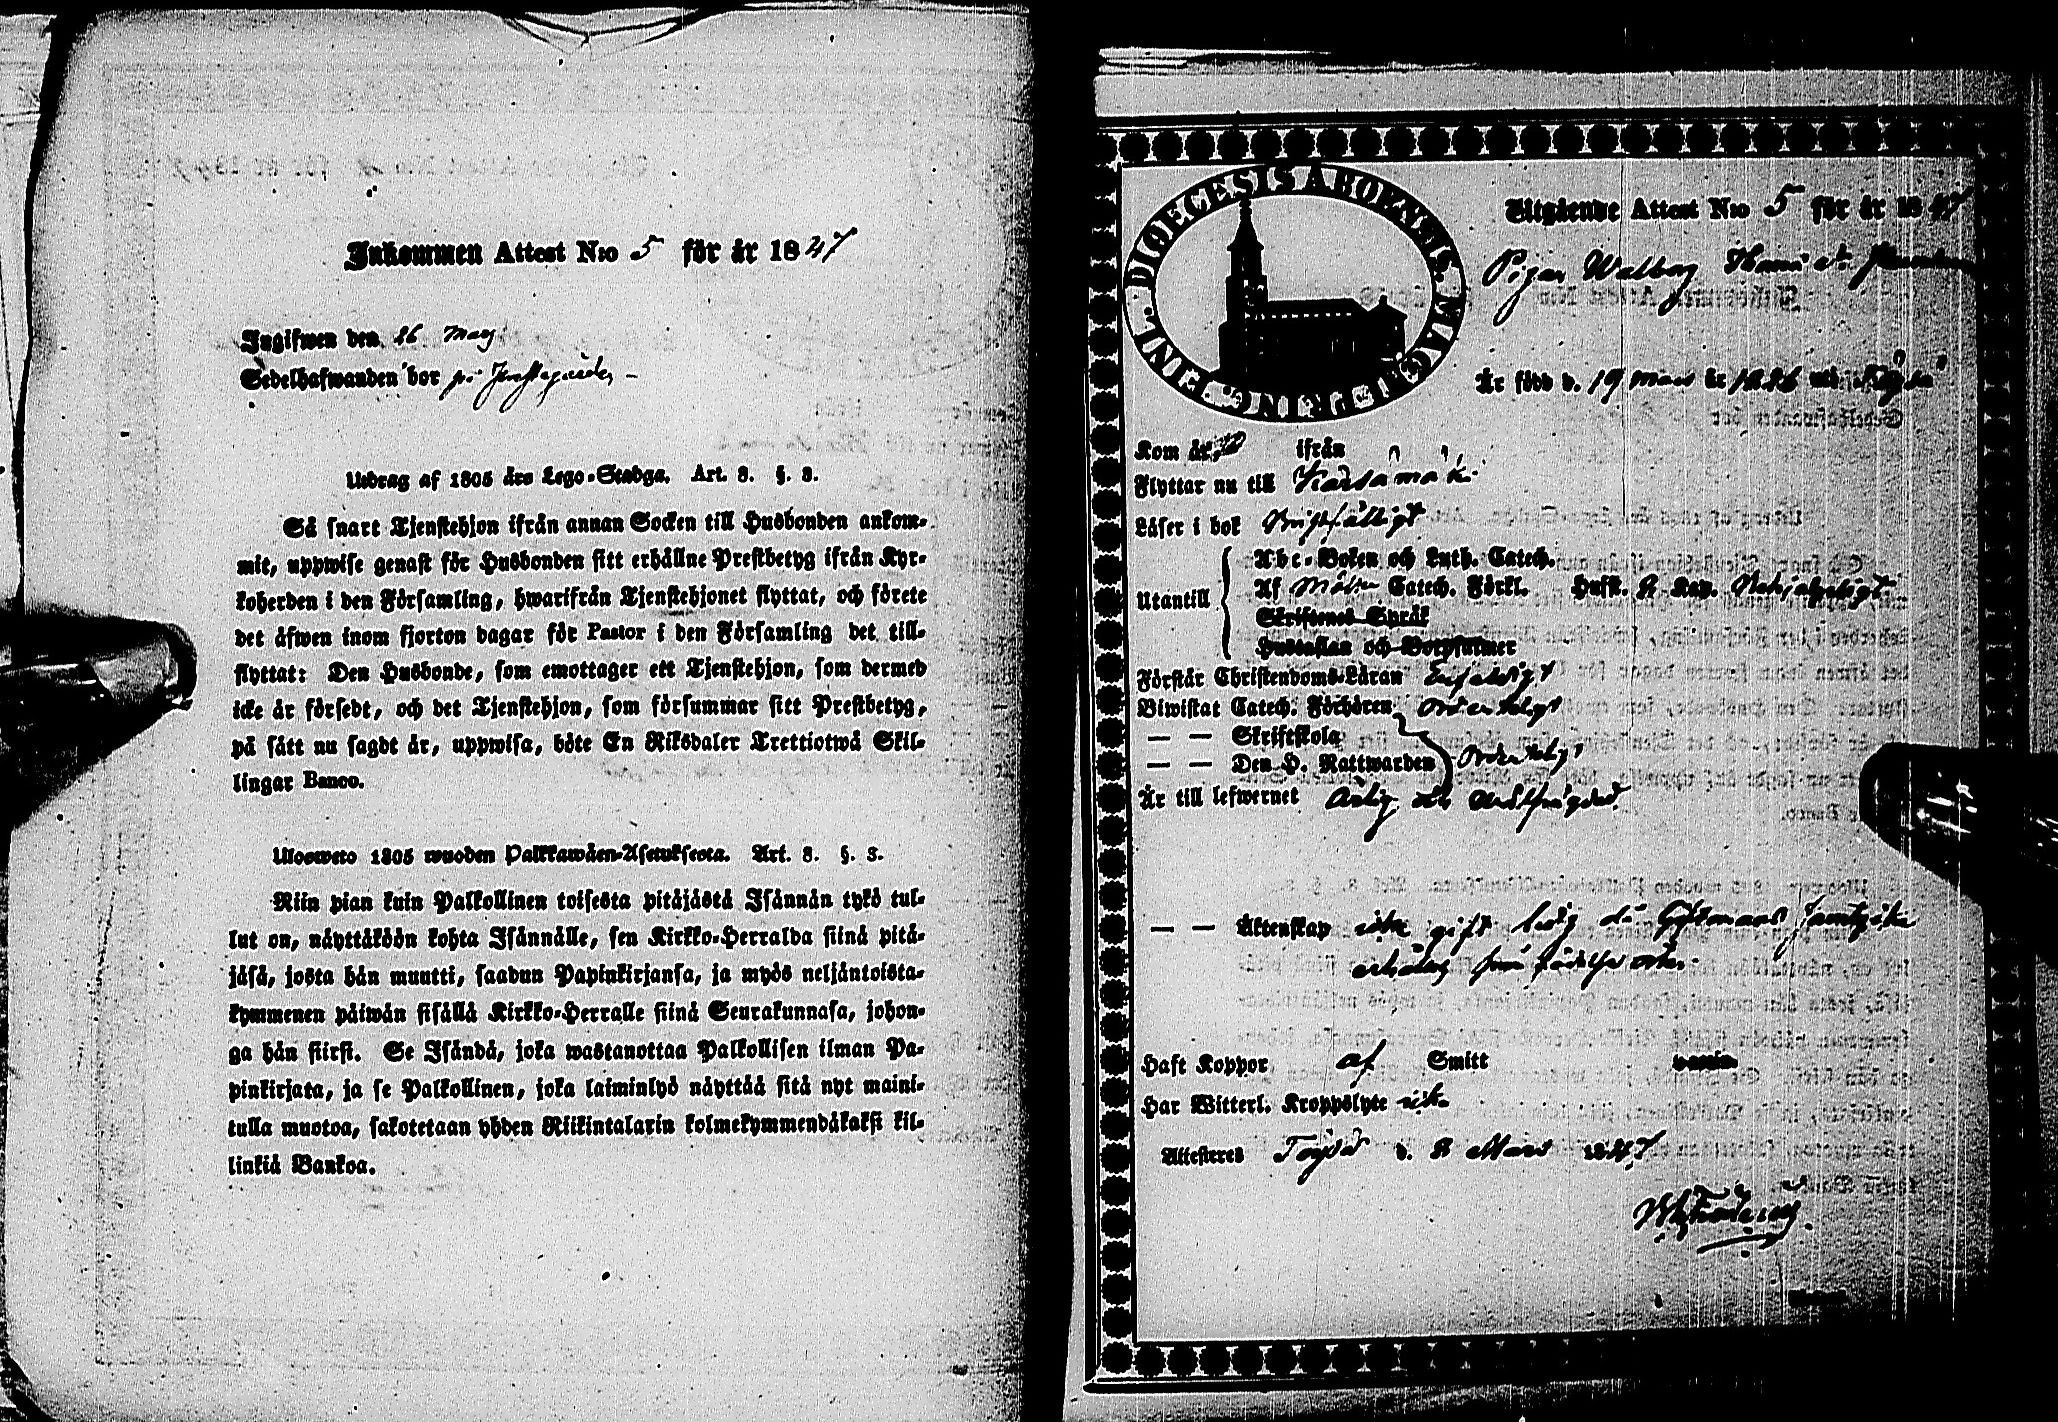 Inkommen Attest N:o 5 för år 1847
Ingifwen den 26 Maj
Sedelhafwanden bor på
Utdrag af 1805 års Lego-Stadga. Art. 8. §. 3.
Så snart Tjenstehjon ifrån annan Socken till Husbonden ankom-
mit, uppwise genast för Husbonden sitt erhållne Prestbetyg ifrån Kyr-
koherden i den Församling, hwarifrån Tjenstehjonet flyttat, och förete
det äfwen inom fjorton dagar för Pastor i den Församling det till-
flyttat: Den Husbonde, som emottager ett Tjenstehjon, som dermed
icke är försedt, och det Tjenstehjon, som försummar sitt Prestbetyg,
på sätt nu sagdt är, uppwisa, böte En Riksdaler Trettiotwå Skil-
lingar Banco.
Ulosweto 1805 wuoden Palkkawäen-Asetuksesta. Art. 8. §. 3.
Niin pian kuin Palkollinen toisesta pitäjästä Isännän tykö tul-
lut on, näyttäköön kohta Isännälle, sen Kirkko-Herralda siinä pitä-
jäsä, josta hän muutti, saadun Papinkirjansa, ja myös neljäntoista-
kymmenen päiwän sisällä Kirkko-Herralle siinä Seurakunnasa, johon-
ga hän siirsi. Se Isändä, joka wastanottaa Palkollisen ilman Pa-
pinkirjata, ja se Palkollinen, joka laiminlyö näyttää sitä nyt maini-
tulla muotoa, sakotetaan yhden Riikintalarin kolmekymmendäkaksi kil-
linkiä Bankoa.
DIOECESIS ABOENSIS. MAGNI PRINC. FINL.
Utgående Attest N:o 5 för år 1847
Pigan Walborg
Är född d. 19 Mars år 1826 uti Töysä
Kom år ifrån
Flyttar nu till Kärsämäki
Läser i bok
Utantill
Abc-Boken och Luth. Catech.
Af Catech. Förkl. Husk. & Kap.
Skriftenes Språk
Hustaflan och Dopformer
Förstår Christendoms-Läran Enfaldigt
Biwistat Catech. Förhören Ordentligt
— — Skriftskola
— — Den H. Nattwarden Ordentligt
Är till lefwernet Ärlig och wälfrägdad
— — Äktenskap icke gift ledig
Haft Koppor af Smitt vaccin.
Har Witterl. Kroppslyte icke
Attesteres Töysä d. 8 Mars 1847